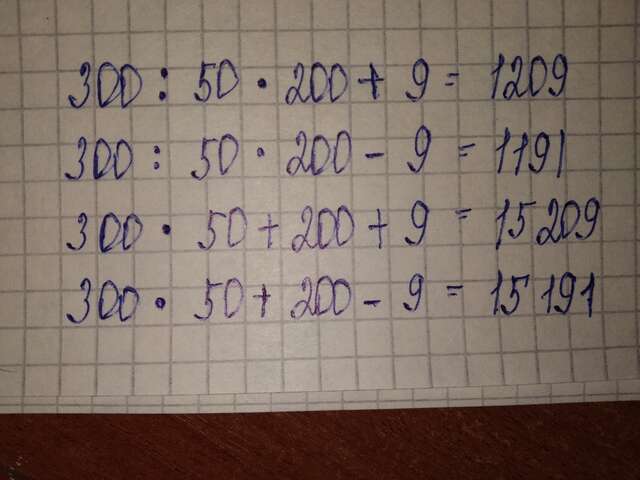 300 : 50 · 200 + 9 = 1209
300 : 50 · 200 - 9 = 1191
300 · 50 + 200 + 9 = 15 209
300 · 50 + 200 - 9 = 15 191